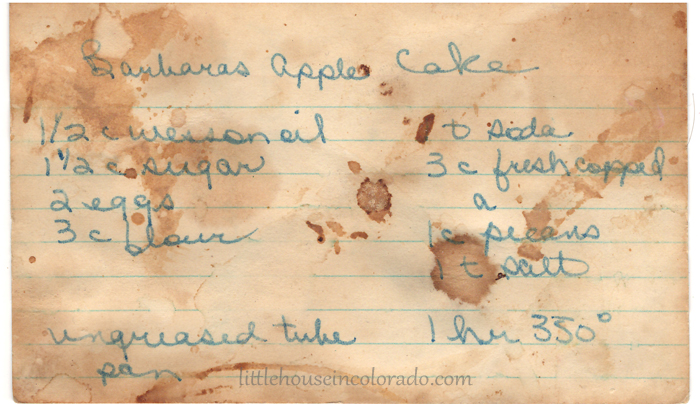 Barbaras Apple Cake
1 1/2 c wesson oil
1 1/2 c sugar
2 eggs
3 c flour
1 t soda
3 c fresh copped
a
1 c pecans
1 t salt
ungreased tube
pan
1 hr 350°
littlehouseincolorado.com